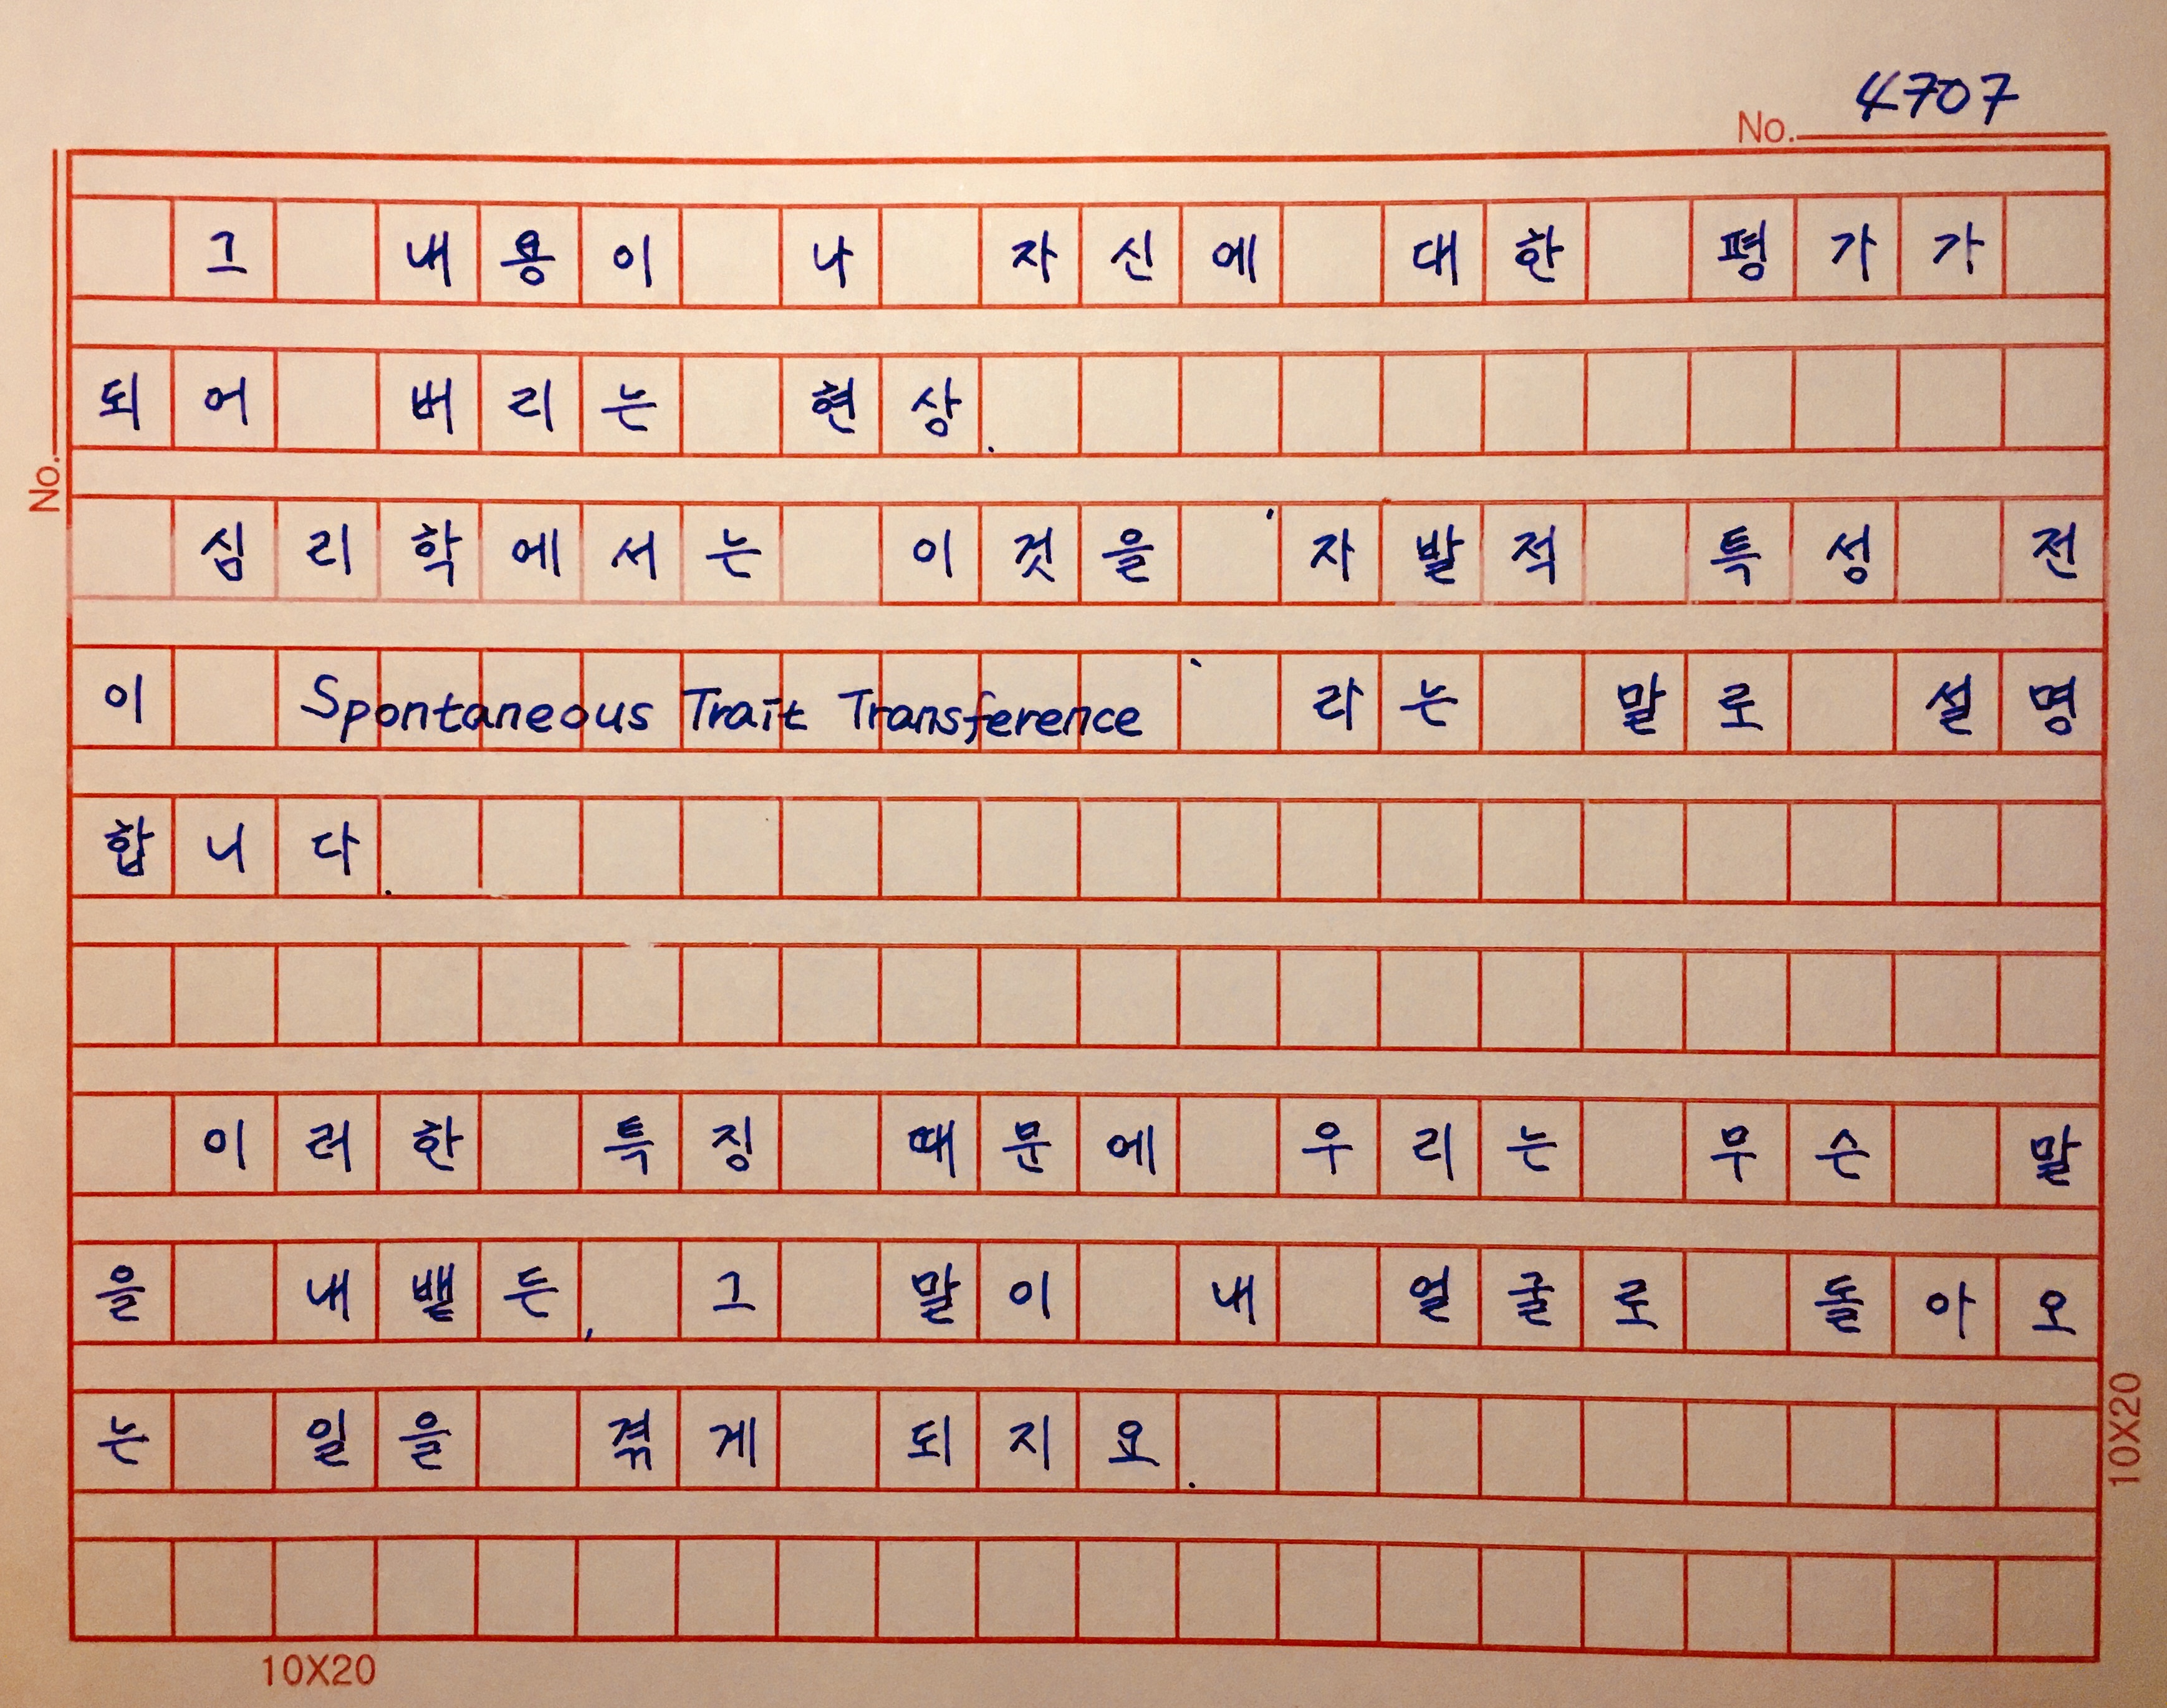 4707
No.
그 내용이 나 자신에 대한 평가가
되어 버리는 현상.
No.
심리학에서는 이것을 '자발적 특성 전
이 Spontaneous Trait Transference'라는 말로 설명
합니다.
이러한 특징 때문에 우리는 무슨 말
을 내뱉든, 그 말이 내 얼굴로 돌아오
는 일을 겪게 되지요.
10X20
10X20